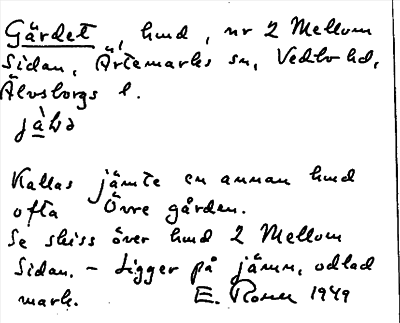 Gärdet, hmd, nr 2 Mellom
Sidan, Ärtemarks sn, Vedbo hd,
Älvsborgs l.
Kallas jämte en annan hmd
ofta Övre gården.
Se skiss över hmd 2 Mellom
Sidan. – Ligger på jämn, odlad
mark. E. Rosen 1949